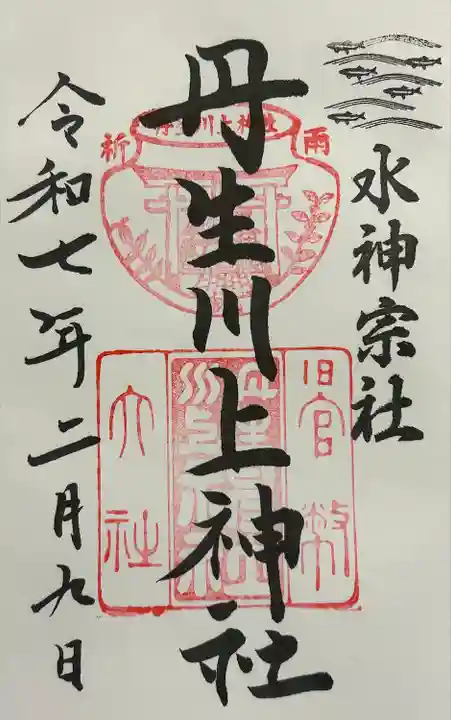 水神宗社
丹生川上神社
令和七年二月九日
丹生川上神社
祈雨
旧官幣
大社